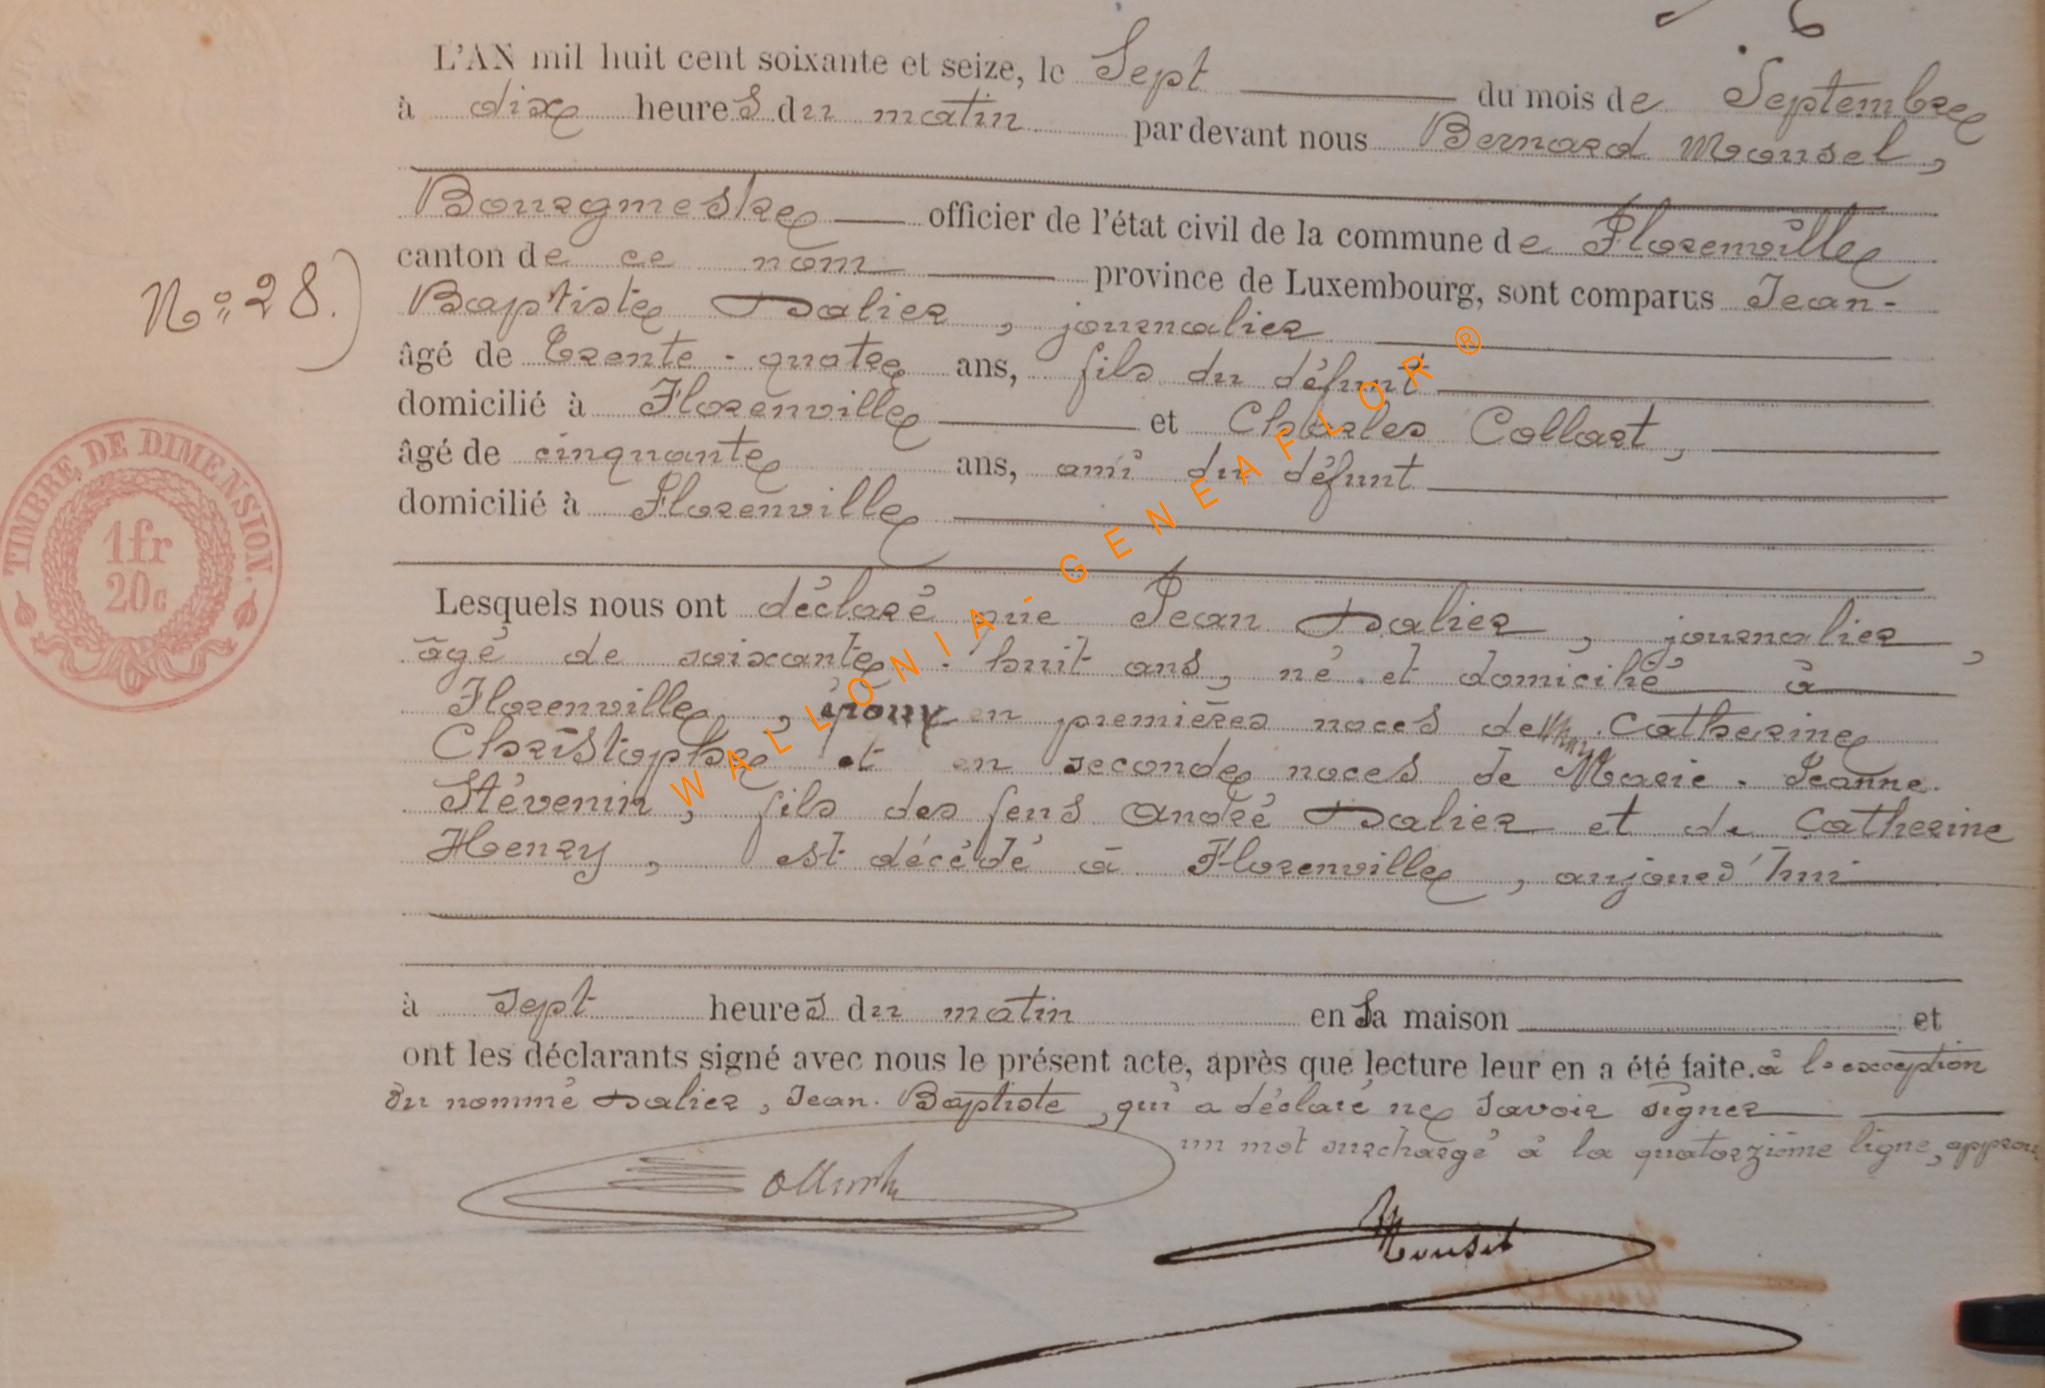 L'AN mil huit cent soixante et seize, le Sept du mois de Septembre
à dix heures du matin par devant nous Bernard Mousel,
Bourgmestre officier de l'état civil de la commune de Florenville
canton de ce nom province de Luxembourg, sont comparus Jean-
Baptiste Dalier, journalier
âgé de Trente-quatre ans, fils du défunt
domicilié à Florenville et Charles Collart,
âgé de cinquante ans, ami du défunt
domicilié à Florenville
N° 28.)
TIMBRE DE DIMENSION.
1fr
20c
Lesquels nous ont déclaré que Jean Dalier, journalier,
âgé de soixante-huit ans, né et domicilié à
Florenville, époux en premières noces de Catherine
Christophe et en seconde noces de Marie-Jeanne
Stévenin, fils des feus André Dalier et de Catherine
Henry, est décédé à Florenville, aujourd'hui
à sept heures du matin en sa maison et
ont les déclarants signé avec nous le présent acte, après que lecture leur en a été faite. à l'exception
du nommé Dalier, Jean-Baptiste, qui a déclaré ne savoir signer
un mot surchargé à la quatorzième ligne, approu
Collart
Mousel
WALLONIA-GENEAFLOR ®